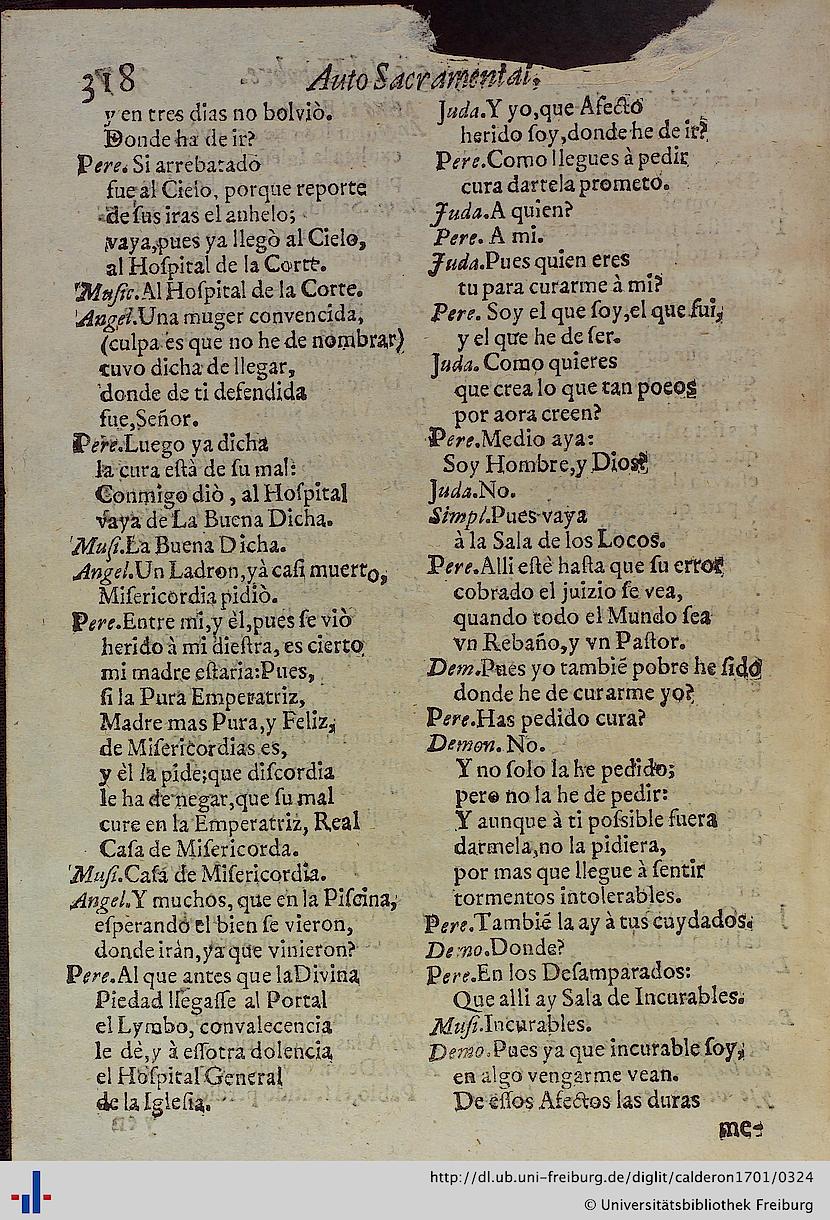 318
Auto Sacramental.
y en tres dias no bolviò.
Donde ha de ir?
Pere. Si arrebatado
fue al Cielo, porque reporte
de ſus iras el anhelo;
vaya, pues ya llegò al Cielo,
al Hoſpital de la Corte.
Muſic. Al Hoſpital de la Corte.
Angel. Una muger convencida,
(culpa es que no he de nombrar)
tuvo dicha de llegar,
donde de ti defendida
fue, Señor.
Pere. Luego ya dicha
la cura eſtà de ſu mal:
Conmigo diò, al Hoſpital
vaya de La Buena Dicha.
Muſi. La Buena Dicha.
Angel. Un Ladron, yà caſi muerto,
Miſericordia pidiò.
Pere. Entre mi, y èl, pues ſe viò
herido à mi dieſtra, es cierto
mi madre eſtaria: Pues,
ſi la Pura Emperatriz,
Madre mas Pura, y Feliz,
de Miſericordias es,
y èl la pide; que diſcordia
le ha de negar, que ſu mal
cure en la Emperatriz, Real
Caſa de Miſericorda.
Muſi. Caſa de Miſericordia.
Angel. Y muchos, que en la Piſcina,
eſperando el bien ſe vieron,
donde iràn, ya que vinieron?
Pere. Al que antes que la Divina
Piedad llegaſſe al Portal
el Lymbo, convalecencia
le dè, y à eſſotra dolencia
el Hoſpital General
de la Igleſia.
Juda. Y yo, que Afecto
herido ſoy, donde he de ir?
Pere. Como llegues à pedir
cura dartela prometo.
Juda. A quien?
Pere. A mi.
Juda. Pues quien eres
tu para curarme à mi?
Pere. Soy el que ſoy, el que fui,
y el que he de ſer.
Juda. Como quieres
que crea lo que tan pocos
por aora creen?
Pere. Medio aya:
Soy Hombre, y Dios?
Juda. No.
Simpl. Pues vaya
à la Sala de los Locos.
Pere. Alli eſtè haſta que ſu error
cobrado el juizio ſe vea,
quando todo el Mundo ſea
vn Rebaño, y vn Paſtor.
Dem. Pues yo tambiē pobre he ſido
donde he de curarme yo?
Pere. Has pedido cura?
Demon. No.
Y no ſolo la he pedido;
pero no la he de pedir:
Y aunque à ti poſsible fuera
darmela, no la pidiera,
por mas que llegue à ſentir
tormentos intolerables.
Pere. Tambiē la ay à tus cuydados.
Demo. Donde?
Pere. En los Deſamparados:
Que alli ay Sala de Incurables.
Muſi. Incurables.
Demo. Pues ya que incurable ſoy,
en algo vengarme vean.
De eſſos Afectos las duras
me-
http://dl.ub.uni-freiburg.de/diglit/calderon1701/0324
© Universitätsbibliothek Freiburg